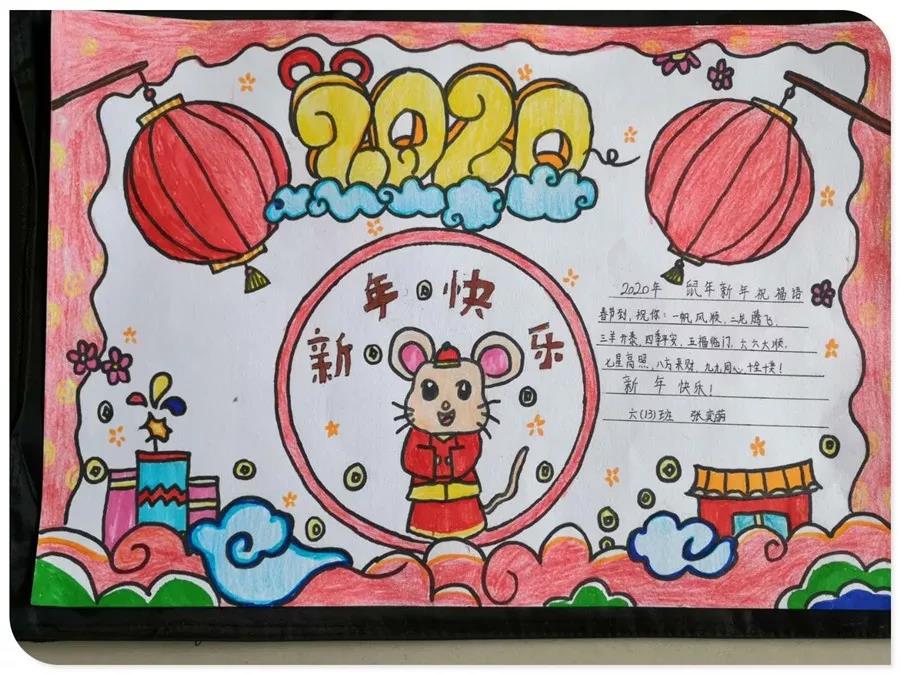 2020
新年快乐
2020年 鼠年新年祝福语
春节到，祝你：一帆风顺，二龙腾飞，
三羊开泰，四季平安，五福临门，六六大顺，
七星高照，八方来财，九九同心，十全十美！
新 年 快乐！
六(13)班 张奕